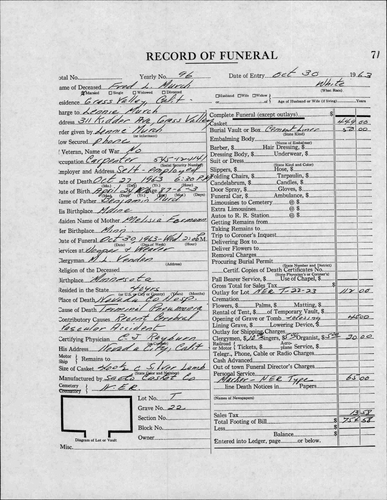 RECORD OF FUNERAL
71
Total No.
Yearly No. 96
Date of Entry Oct 30 1963
Name of Deceased Fred L. March
White
Married Single Widowed Divorced
Husband Wife
(What Race)
Residence Grass Valley, Calif.
Age of Husband or Wife (if living) Years
Charge to Lennie March
Complete Funeral (except outlays) $
Address 311 Kidder Ave, Grass Valley
Casket 449 00
Order given by Lennie March
Burial Vault or Box Cement Liner 50 00
How Secured Phone
Embalming Body
Veteran, Name of War No
Barber, $ Hair Dressing, $
Occupation Carpenter
Dressing Body, $ Underwear, $
Suit or Dress
Employer and Address Self-Employed
Slippers, $ Hose, $
Date of Death Oct 27, 1963 6:30 P.M.
Folding Chairs, $ Tarpaulin, $
Candelabrum, $ Candles, $
Door Spray, $ Gloves, $
Name of Father Benjamin March
Funeral Car, $ Ambulance, $
His Birthplace Maine
Limousines to Cemetery @ $
Extra Limousines @ $
Maiden Name of Mother Melissa
Autos to R. R. Station @ $
Getting Remains
Her Birthplace Minn
Taking Remains
Date of Funeral Oct 30, 1963-Wed 2:00 P.M.
Trip to Coroner's Inquest
Delivering Box to
Services at Hooper & Weaver
Deliver Flowers
Removal Charges
Clergyman
Procuring Burial Permit
Religion of the Deceased
Certif. Copies of Death Certificates No.
Birthplace Minnesota
Pall Bearer Service, $ Use of Chapel, $
Gross Total for Sales Tax
Resided in the State 40 yrs
Outlay for Lot NER T-22-23 117.00
Place of Death Nevada Co Hosp.
Cremation
Flowers, $ Palms, $ Matting, $
Cause of Death Terminal Pneumonia
Rental of Tent, $ of Temporary Vault, $
Contributory Causes Recent Cerebral
Opening of Grave or Tomb
Vascular Accident
Lining Grave, $ Lowering Device, $
Outlay for Shipping Charges
Certifying Physician C. J. Rayburn
Clergymen, $ Singers, $ Organist, $ 20 00
His Address Nevada City, Calif
Telegr., Phone, Cable or Radio Charges
Remains to
Cash Advanced
Out of Town Funeral Director's Charges
Size of Casket
Personal Service
Manufactured by Casket Co
Marker - NER Type 65 00
Cemetery N.E.R.
line Death Notices in Papers
Lot No. T
(Names of Newspapers)
Grave No. 22
Section No.
Sales Tax
Block No.
Total Footing of Bill $
Less
Owner
Balance $
Diagram of Lot or Vault
Entered into Ledger, page or below.
Misc.